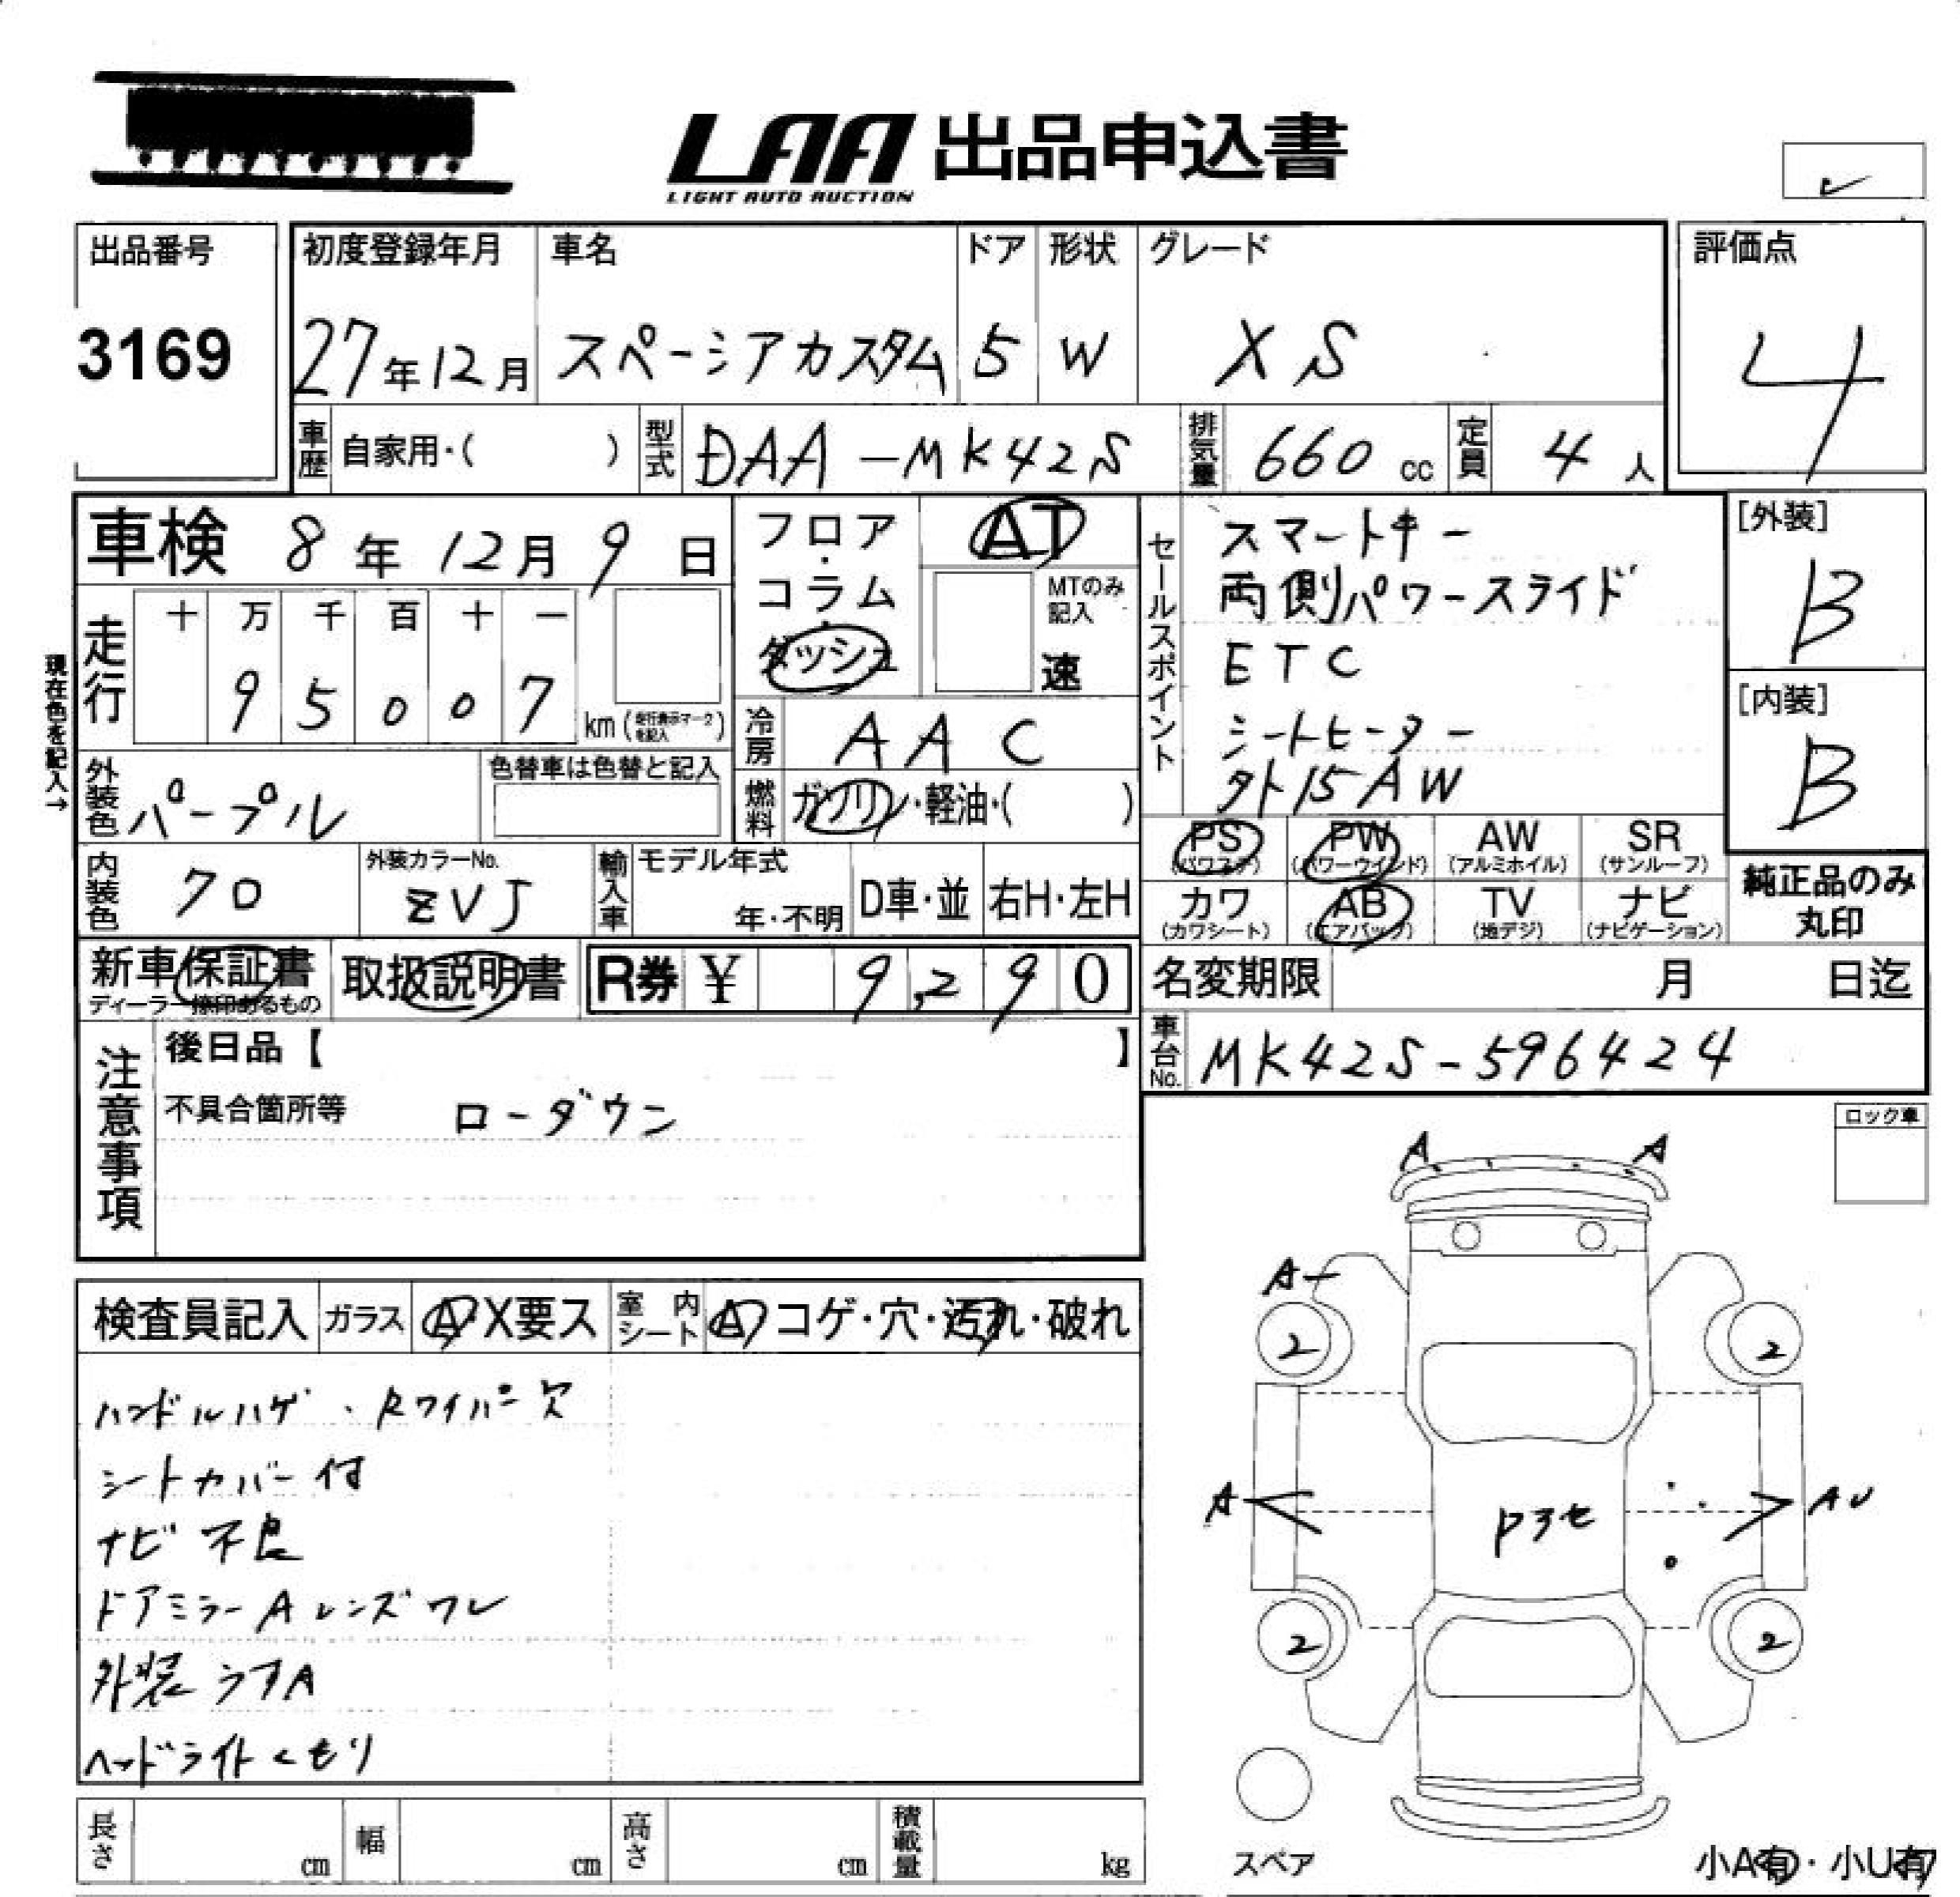 LAA 出品申込書
LIGHT AUTO AUCTION
レ
出品番号
3169
初度登録年月
27年12月
車名
スペーシアカスタム
ドア
5
形状
W
グレード
XS
評価点
4
車歴 自家用・( )
型式 DAA-MK42S
排気量 660 cc
定員 4 人
車検 8年12月9日
現在色を記入→
走行
十 万 千 百 十 一
9 5 0 0 7
km(走行表示マークを記入)
フロア・コラム・ダッシュ
AT
MTのみ記入
速
冷房 AAC
燃料 ガソリン・軽油・( )
外装色 パープル
色替車は色替と記入
内装色 クロ
外装カラーNo.
ZVJ
輸入車
モデル年式
年・不明
D車・並
右H・左H
セールスポイント
スマートキー
両側パワースライド
ETC
シートヒーター
外15AW
[外装]
B
[内装]
B
PS
(パワステ)
PW
(パワーウインド)
AW
(アルミホイル)
SR
(サンルーフ)
カワ
(カワシート)
AB
(エアバッグ)
TV
(地デジ)
ナビ
(ナビゲーション)
純正品のみ
丸印
新車保証書
ディーラー捺印あるもの
取扱説明書
R券 ¥ 9,290
名変期限 月 日迄
車台No. MK42S-596424
注意事項
後日品【 】
不具合箇所等 ローダウン
ロック車
検査員記入
ガラス A・X要ス
室内シート A・コゲ・穴・汚れ・破れ
ハンドルハゲ・Rワイパー欠
シートカバー付
ナビ不良
ドアミラーAレンズワレ
外装うすA
ヘッドライトくもり
A A
A
2 2
A Pヨセ AU
2 2
スペア
小A有・小U有
長さ cm
幅 cm
高さ cm
積載量 kg